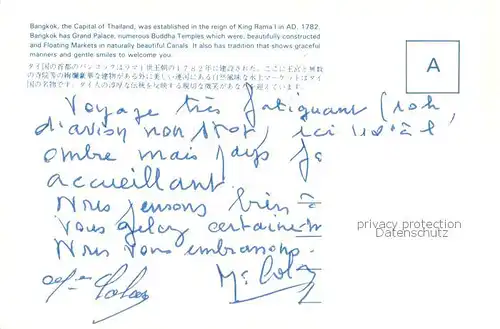 Bangkok, the Capital of Thailand, was established in the reign of King Rama I in AD, 1782.
Bangkok has Grand Palace, numerous Buddha Temples which were, beautifully constructed
and Floating Markets in naturally beautiful Canals. It also has tradition that shows graceful
manners and gentle smiles to welcome you.
タイ国の首都のバンコックはラマ1世王朝の1782年に建設された。ここに王宮と無数
の寺院等の絢爛豪華な建物がある外に美しい運河にある自然風味な水上マーケットはタイ
国の名物です。タイ人の淳厚な伝統を反映する親切な微笑があなたを迎えています。
A
Voyage très fatiguant (
d'avion non stop, ici à l'
ombre mais pays
accueillant
Nous pensons bien à
vous gelez certainem
Nous vous embrassons.
privacy protection
Datenschutz